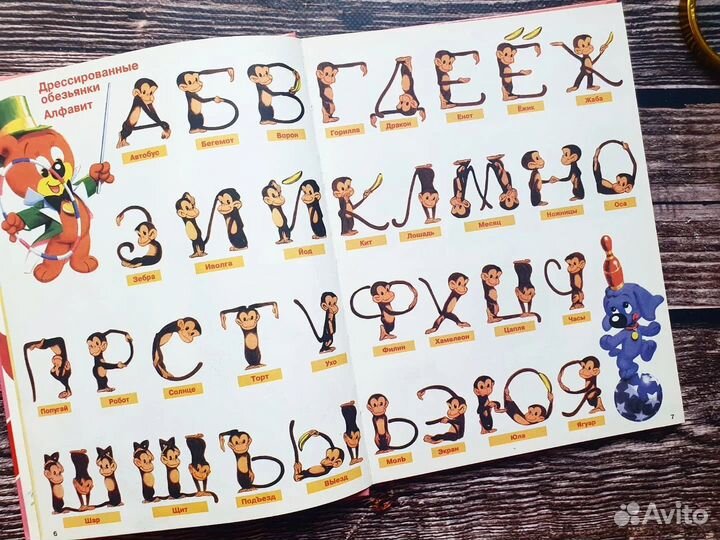 Дрессированные
обезьянки
Алфавит
А Б В
Автобус Бегемот Ворон
З И Й
Зебра Иволга Йод
П Р С Т У
Попугай Робот Солнце Торт Ухо
Ш Щ Ъ Ы
Шар Щит ПодЪезд ВЫезд
6
Г Д Е Ё Ж
Горилла Дракон Енот Ёжик Жаба
К Л М Н О
Кит Лошадь Месяц Ножницы Оса
Ф Х Ц Ч
Филин Хамелеон Цапля Часы
Ь Э Ю Я
МолЬ Экран Юла Ягуар
7
Avito